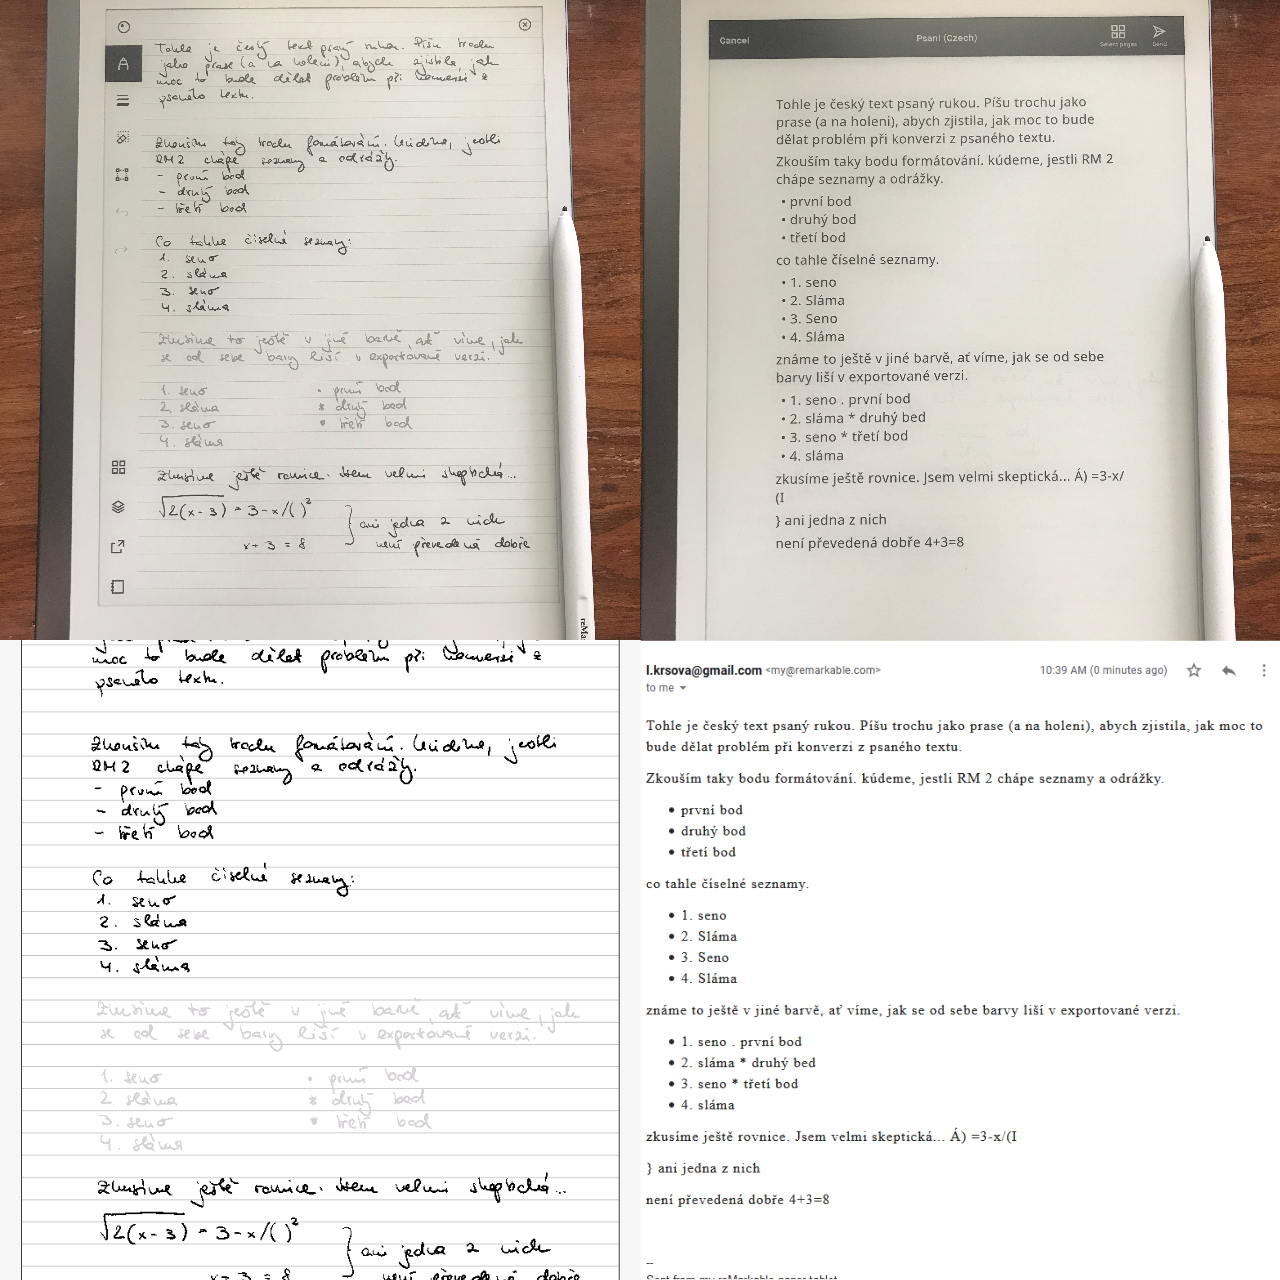 Tohle je český text psaný rukou. Píšu trochu
jako prase (a na holeni), abych zjistila, jak
moc to bude dělat problém při konverzi z
psaného textu.
Zkouším taky trochu formátování. Uvidíme, jestli
RM2 chápe seznamy a odrážky.
- první bod
- druhý bod
- třetí bod
Co tohle číselné seznamy:
1. seno
2. sláma
3. seno
4. sláma
Zkusíme to ještě v jiné barvě, ať víme, jak
se od sebe barvy liší v exportované verzi.
1. seno • první bod
2. sláma * druhý bod
3. seno • třetí bod
4. sláma
Zkusíme ještě rovnice. Jsem velmi skeptická...
√2(x-3) = 3-x/( )²
} ani jedna z nich
x+3=8 není převedená dobře
Cancel
Psaní (Czech)
Select pages
Send
Tohle je český text psaný rukou. Píšu trochu jako
prase (a na holeni), abych zjistila, jak moc to bude
dělat problém při konverzi z psaného textu.
Zkouším taky bodu formátování. kúdeme, jestli RM 2
chápe seznamy a odrážky.
• první bod
• druhý bod
• třetí bod
co tahle číselné seznamy.
• 1. seno
• 2. Sláma
• 3. Seno
• 4. Sláma
známe to ještě v jiné barvě, ať víme, jak se od sebe
barvy liší v exportované verzi.
• 1. seno . první bod
• 2. sláma * druhý bed
• 3. seno * třetí bod
• 4. sláma
zkusíme ještě rovnice. Jsem velmi skeptická... Á) =3-x/
(I
} ani jedna z nich
není převedená dobře 4+3=8
moc to bude dělat problém při konverzi z
psaného textu.
Zkouším taky trochu formátování. Uvidíme, jestli
RM2 chápe seznamy a odrážky.
- první bod
- druhý bod
- třetí bod
Co tohle číselné seznamy:
1. seno
2. sláma
3. seno
4. sláma
Zkusíme to ještě v jiné barvě, ať víme, jak
se od sebe barvy liší v exportované verzi.
1. seno • první bod
2. sláma * druhý bod
3. seno • třetí bod
4. sláma
Zkusíme ještě rovnice. Jsem velmi skeptická...
√2(x-3) = 3-x/( )²
} ani jedna z nich
x+3=8 není převedená dobře
l.krsova@gmail.com <my@remarkable.com> 10:39 AM (0 minutes ago)
to me
Tohle je český text psaný rukou. Píšu trochu jako prase (a na holeni), abych zjistila, jak moc to
bude dělat problém při konverzi z psaného textu.
Zkouším taky bodu formátování. kúdeme, jestli RM 2 chápe seznamy a odrážky.
• první bod
• druhý bod
• třetí bod
co tahle číselné seznamy.
• 1. seno
• 2. Sláma
• 3. Seno
• 4. Sláma
známe to ještě v jiné barvě, ať víme, jak se od sebe barvy liší v exportované verzi.
• 1. seno . první bod
• 2. sláma * druhý bed
• 3. seno * třetí bod
• 4. sláma
zkusíme ještě rovnice. Jsem velmi skeptická... Á) =3-x/(I
} ani jedna z nich
není převedená dobře 4+3=8
--
Sent from my reMarkable paper tablet